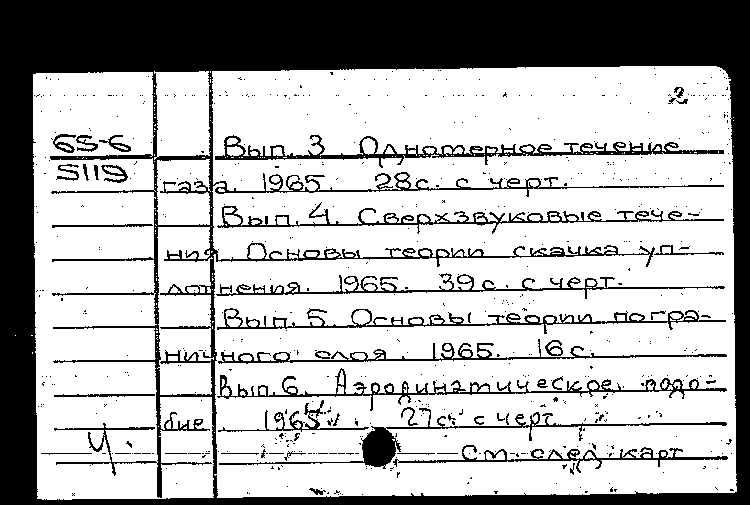 2
65-6 Вып. 3. Одномерное течение
5119 газа. 1965. 28с. с черт.
Вып. 4. Сверхзвуковые тече-
ния. Основы теории скачка уп-
лотнения. 1965. 39с. с черт.
Вып. 5. Основы теории погра-
ничного слоя. 1965. 16с.
Вып. 6. Аэродинамическое подо-
бие. 1965. 27с. с черт.
Ч. См. след. карт